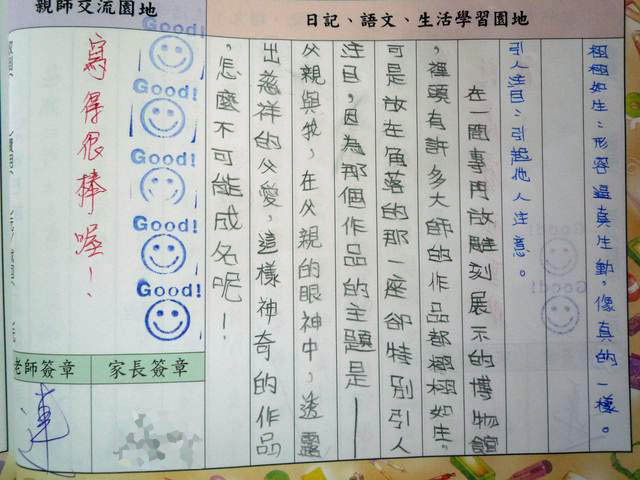 親師交流園地
日記、語文、生活學習園地
栩栩如生：形容逼真生動，像真的一樣。
引人注目：引起他人注意。
在一間專門放雕刻展示的博物館
，裡頭有許多大師的作品都栩栩如生，
可是放在角落的那一座卻特別引人
注目，因為那個作品的主題是——
父親與我，在父親的眼神中，透露
出慈祥的父愛，這樣神奇的作品
，怎麼不可能成名呢！
Good!
Good!
Good!
Good!
Good!
寫得很棒喔！
老師簽章
家長簽章
連